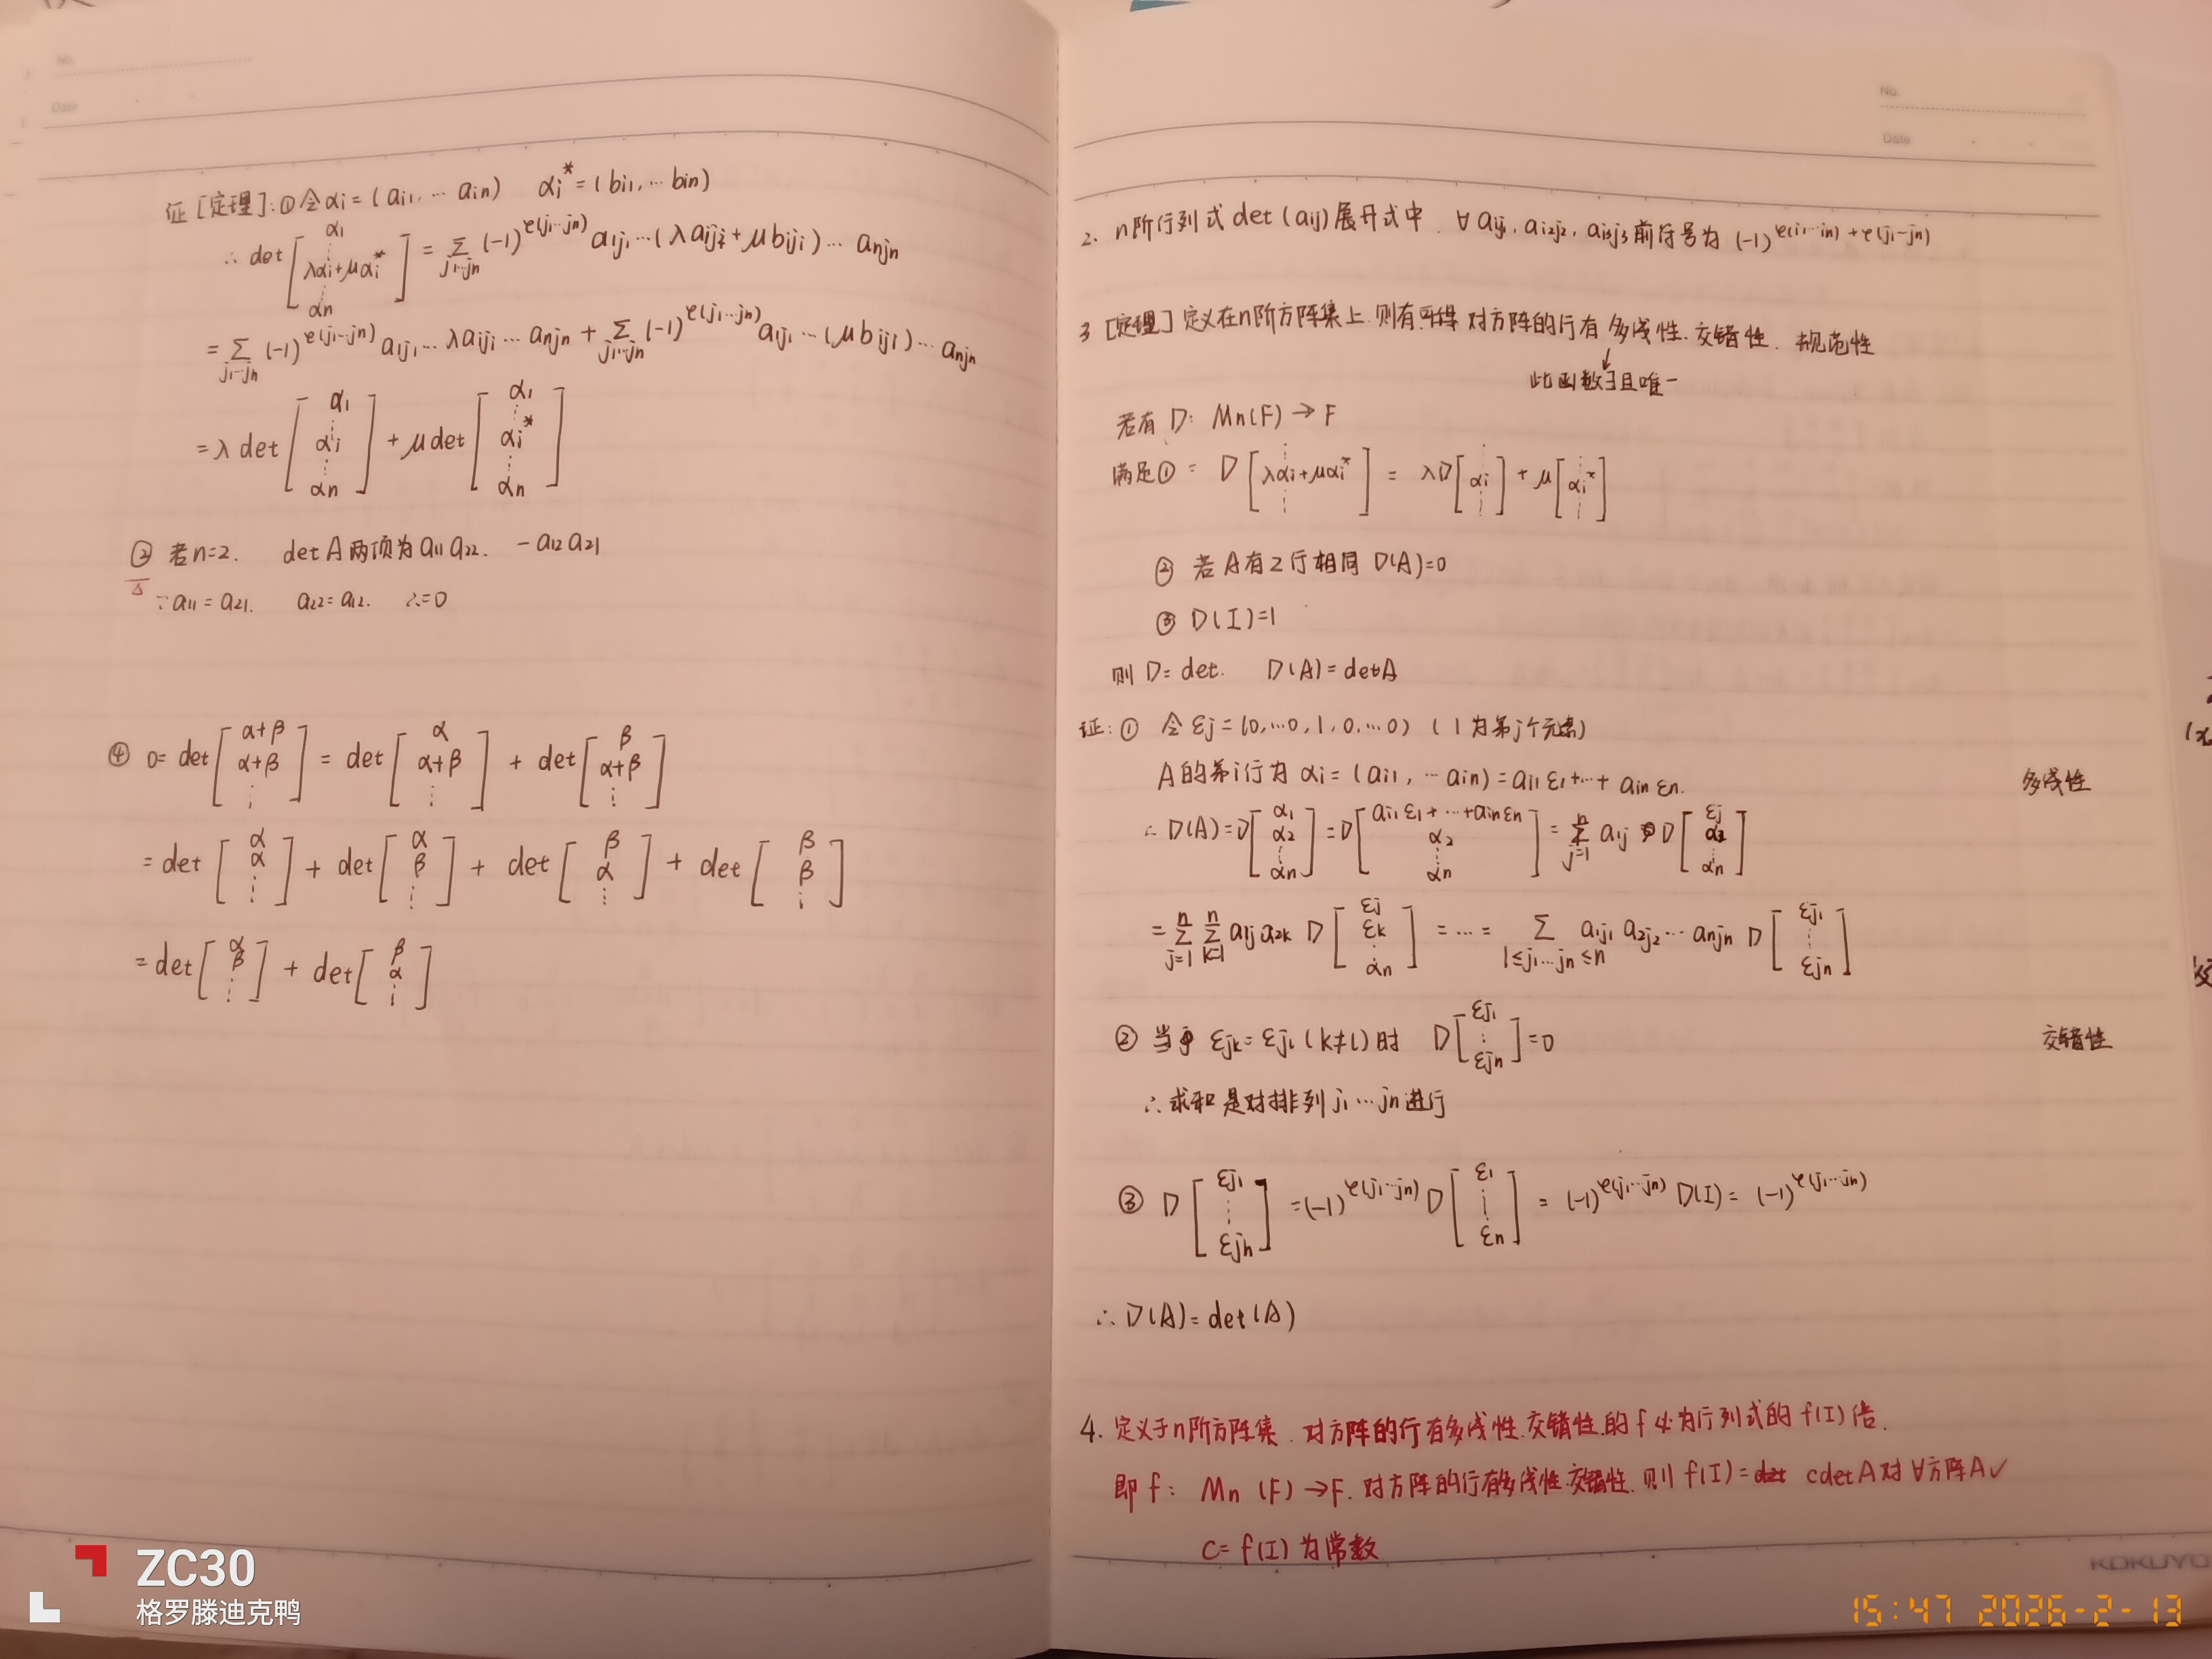 No.
Date
证[定理]:①令αi=(ai1,…ain) αi*=(bi1,…bin)
∴ det[α1 ⋮ λαi+μαi* ⋮ αn] = Σ_{j1…jn} (-1)^{τ(j1…jn)} a1j1…(λaiji+μbiji)…anjn
=Σ_{j1…jn} (-1)^{τ(j1…jn)} a1j1…λaiji…anjn + Σ_{j1…jn} (-1)^{τ(j1…jn)} a1j1…(μbiji)…anjn
=λdet[α1 ⋮ αi ⋮ αn] + μdet[α1 ⋮ αi* ⋮ αn]
② 若n=2. detA两项为a11a22. -a12a21
△
∵a11=a21. a22=a12. ∴=0
④ 0=det[α+β α+β ⋮] = det[α α+β ⋮] + det[β α+β ⋮]
=det[α α ⋮] + det[α β ⋮] + det[β α ⋮] + det[β β ⋮]
=det[α β ⋮] + det[β α ⋮]
No.
Date
2. n阶行列式det(aij)展开式中. ∀ai1j1, ai2j2, ai3j3前符号为 (-1)^{τ(i1…in)+τ(j1…jn)}
3 [定理] 定义在n阶方阵集上.则有 对方阵的行有多线性.交错性. 规范性
↓
此函数∃且唯一
若有 D: Mn(F)→F
满足① = D[⋮ λαi+μαi* ⋮] = λD[⋮ αi ⋮] + μ[⋮ αi* ⋮]
② 若A有2行相同 D(A)=0
③ D(I)=1
则D=det. D(A)=detA
证:① 令εj=(0,…0,1,0,…0) (1为第j个元素)
A的第i行为αi=(ai1,…ain)=ai1ε1+…+ainεn. 多线性
∴ D(A)=D[α1 α2 ⋮ αn]=D[ai1ε1+…+ainεn α2 ⋮ αn] = Σ_{j=1}^{n} a1j D[εj α2 ⋮ αn]
=Σ_{j=1}^{n} Σ_{k=1}^{n} a1ja2k D[εj εk ⋮ αn] =…= Σ_{1≤j1…jn≤n} a1j1a2j2…anjn D[εj1 ⋮ εjn]
② 当 εjk=εjl (k≠l)时 D[εj1 ⋮ εjn]=0 交错性
∴求和是对排列j1…jn进行
③ D[εj1 ⋮ εjn] =(-1)^{τ(j1…jn)} D[ε1 ⋮ εn] = (-1)^{τ(j1…jn)} D(I)= (-1)^{τ(j1…jn)}
∴D(A)=det(A)
4. 定义于n阶方阵集.对方阵的行有多线性.交错性.的f必为行列式的f(I)倍.
即f: Mn(F)→F.对方阵的行有多线性.交错性.则f(I)= cdetA对∀方阵A✓
c=f(I)为常数
KOKUYO
ZC30
格罗滕迪克鸭
15:47 2026-2-13